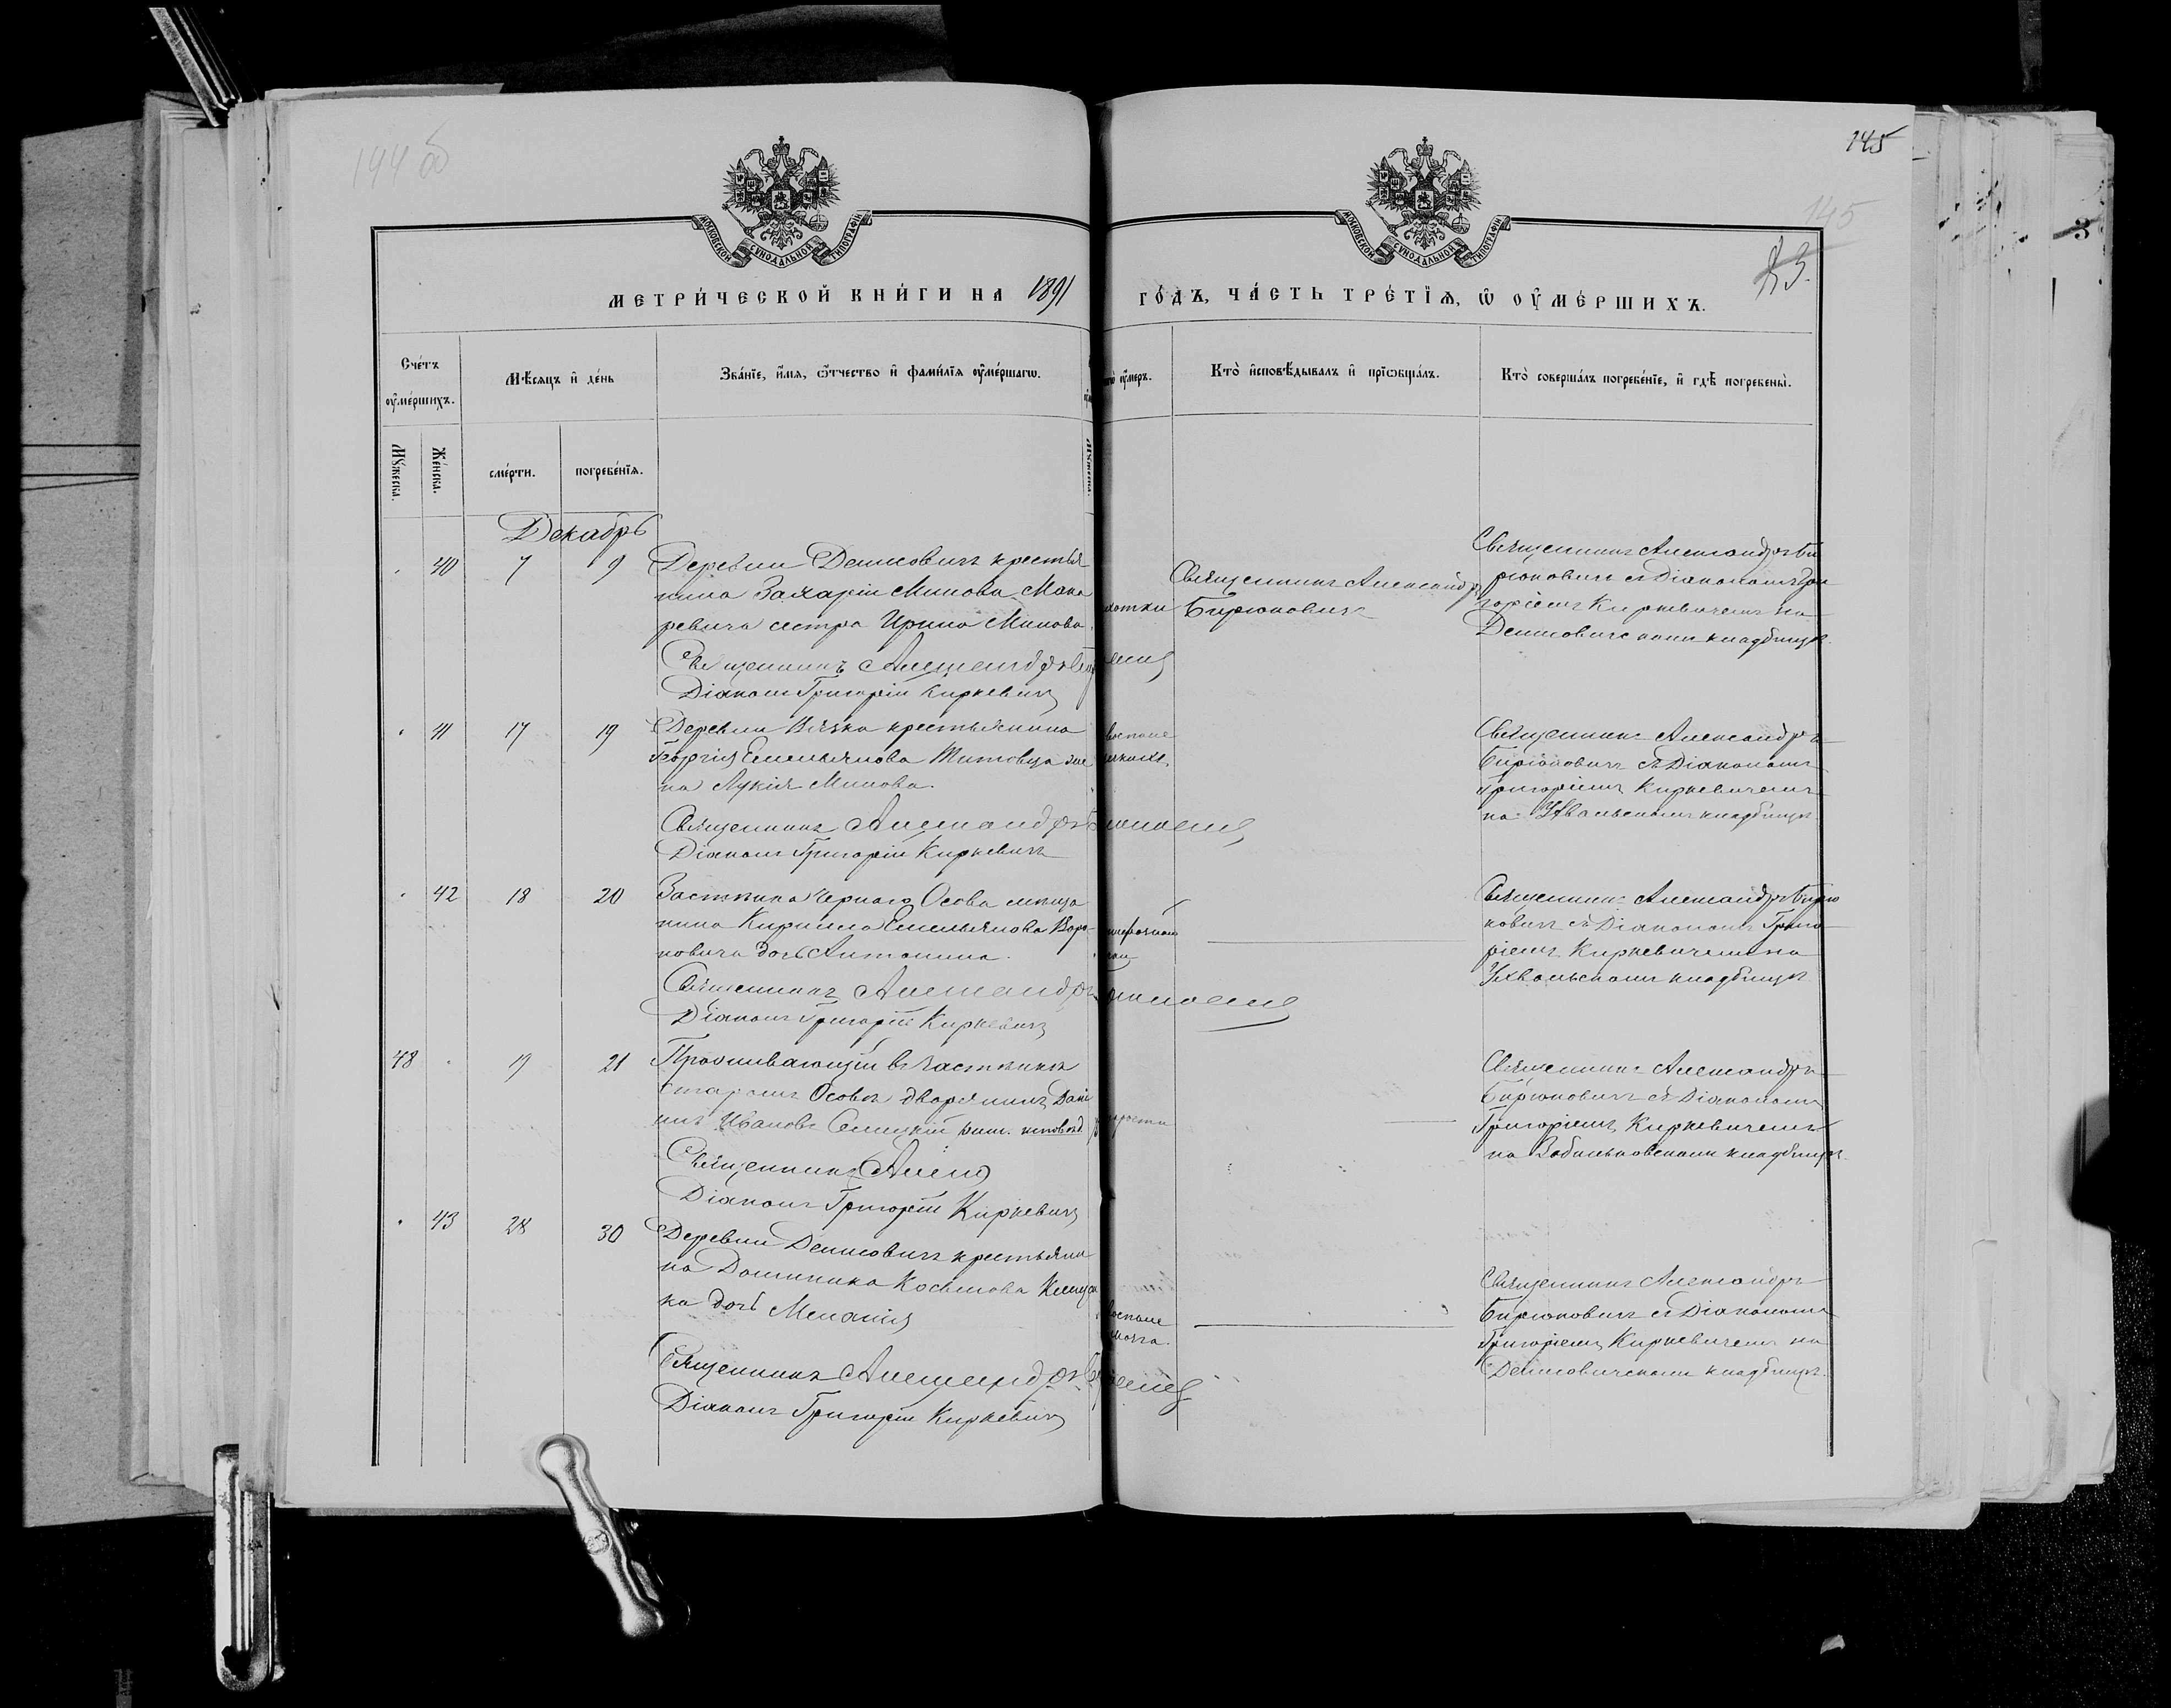 144 об
145
145
83.
МОСКОВСКОЙ СѴНОДАЛЬНОЙ ТИПОГРАФІИ
МОСКОВСКОЙ СѴНОДАЛЬНОЙ ТИПОГРАФІИ
МЕТРИ́ЧЕСКОЙ КНИ́ГИ НА 1891 ГО́ДЪ, ЧА́СТЬ ТРЕ́ТЇѦ, Ѡ҆ ОУ҆МЕ́РШИХЪ.
Сче́тъ оу҆ме́ршихъ.
Мѣ́сяцъ и҆ де́нь
Зва́нїе, и҆́мя, ѻ҆́тчество и҆ фами́лїя оу҆ме́ршагѡ.
оу҆́меръ.
Кто̀ и҆сповѣ́дывалъ и҆ прїѡбща́лъ.
Кто̀ соверша́лъ погребе́нїе, и҆ гдѣ̀ погребены̀.
Мꙋ́жеска.
Же́нска.
сме́рти.
погребе́нїя.
Декабрь
40 7 9
Деревни Денисовичъ крестья
нина Захарія Минова Мака
ревича сестра Ирина Минова
Священникъ Александръ
Діаконъ Григорій Киркевичъ
Священникъ Александръ
Бирюковичъ
Священникъ Александръ Би
рюковичъ съ Діакономъ Гри
горіемъ Киркевичемъ на
Денисовичскомъ кладбищѣ.
41 17 19
Деревни Вязка крестьянина
Георгія Емельянова Титовца же
на Лукія Минова.
Священникъ Александръ
Діаконъ Григорій Киркевичъ
Священникъ Александръ
Бирюковичъ съ Діакономъ
Григоріемъ Киркевичемъ
на Ухвальскомъ кладбищѣ
42 18 20
Застѣнка Чернаго Осова мѣща
нина Кирилла Емельянова Воро
новича дочь Антонина.
Священникъ Александръ
Діаконъ Григорій Киркевичъ
Священникъ Александръ Бирю
ковичъ съ Діакономъ Григо
ріемъ Киркевичемъ на
Ухвальскомъ кладбищѣ
48 19 21
Проживающій въ застѣнкѣ
Старомъ Осовѣ дворянинъ Дані
илъ Ивановъ рим. исповѣд.
Священникъ
Діаконъ Григорій Киркевичъ
Священникъ Александръ
Бирюковичъ съ Діакономъ
Григоріемъ Киркевичемъ
на кладбищѣ
43 28 30
Деревни Денисовичъ крестьяни
на Доминика Косьмова
ка дочь Меланія
Священникъ Александръ
Діаконъ Григорій Киркевичъ
Священникъ Александръ
Бирюковичъ съ Діакономъ
Григоріемъ Киркевичемъ на
Денисовичскомъ кладбищѣ.